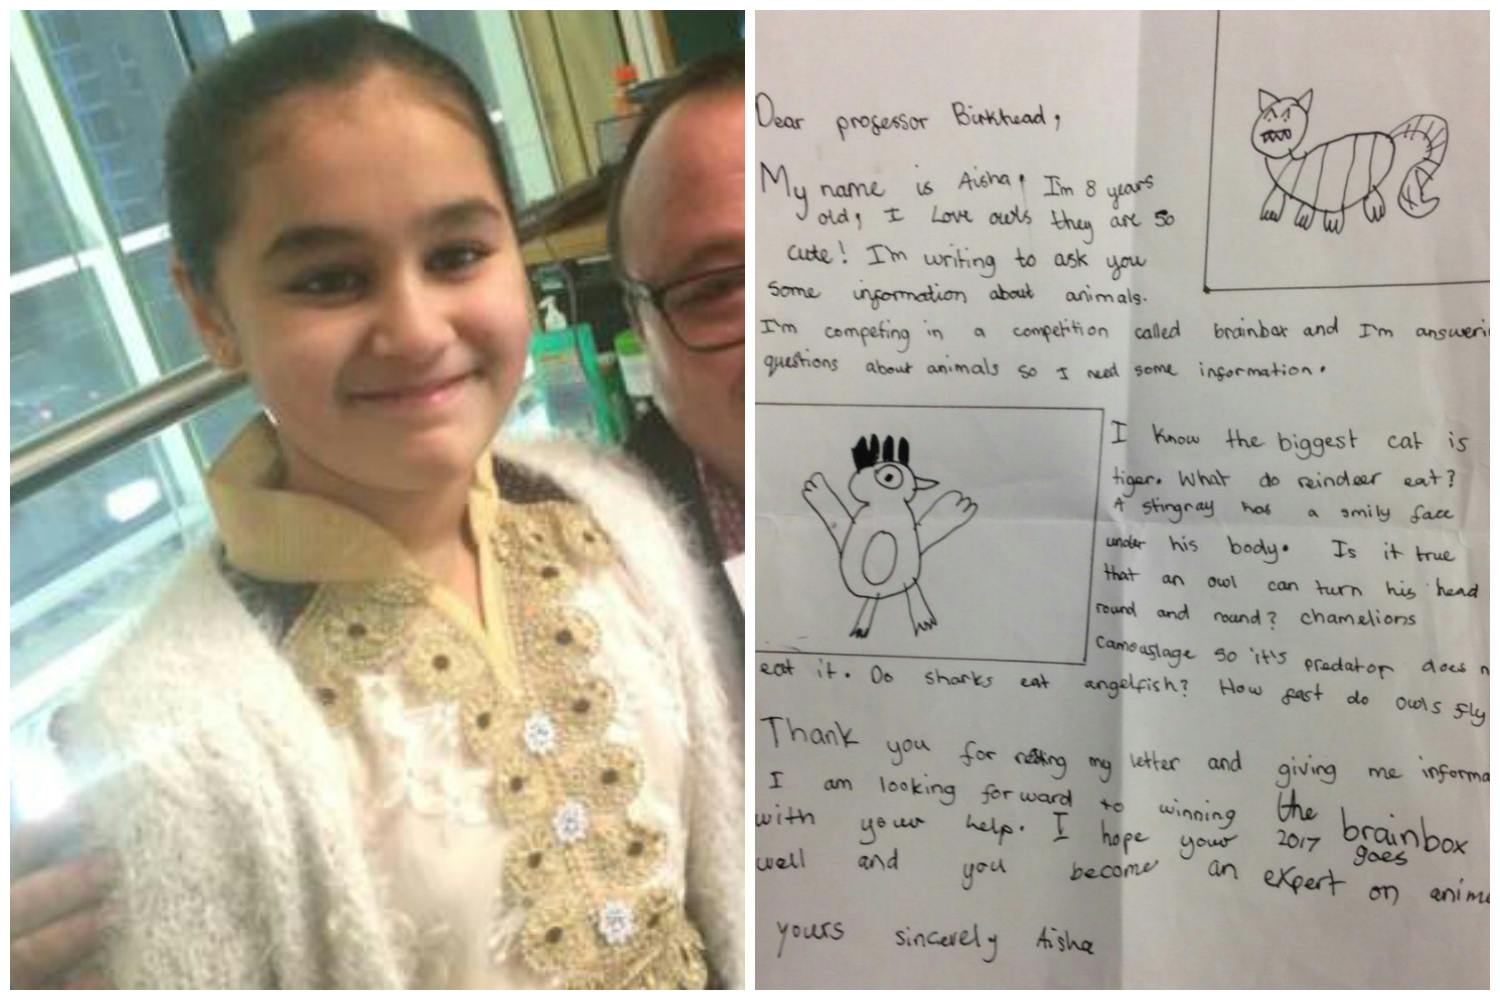 Dear professor Birkhead,
My name is Aisha, I'm 8 years
old, I Love owls they are so
cute! I'm writing to ask you
some information about animals.
I'm competing in a competition called brainbox and I'm answeri
questions about animals so I need some information.
I know the biggest cat is
tiger. What do reindeer eat?
A stingray has a smily face
under his body. Is it true
that an owl can turn his head
round and round? chamelions
camouflage so it's predator does n
eat it. Do sharks eat angelfish? How fast do owls fly
Thank you for my letter and giving me informa
I am looking forward to winning the brainbox
with your help. I hope your 2017 goes
well and you become an expert on anima
yours sincerely Aisha